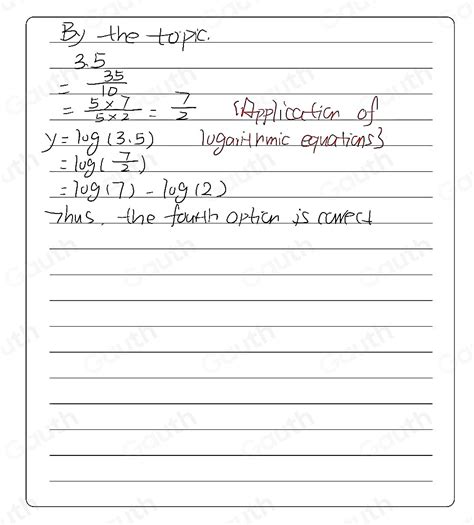 By the topic.
3.5
= 35/10
= 5×7/5×2 = 7/2 {Application of
y = log(3.5) logarithmic equations}
= log(7/2)
= log(7) - log(2)
Thus, the fourth option is correct